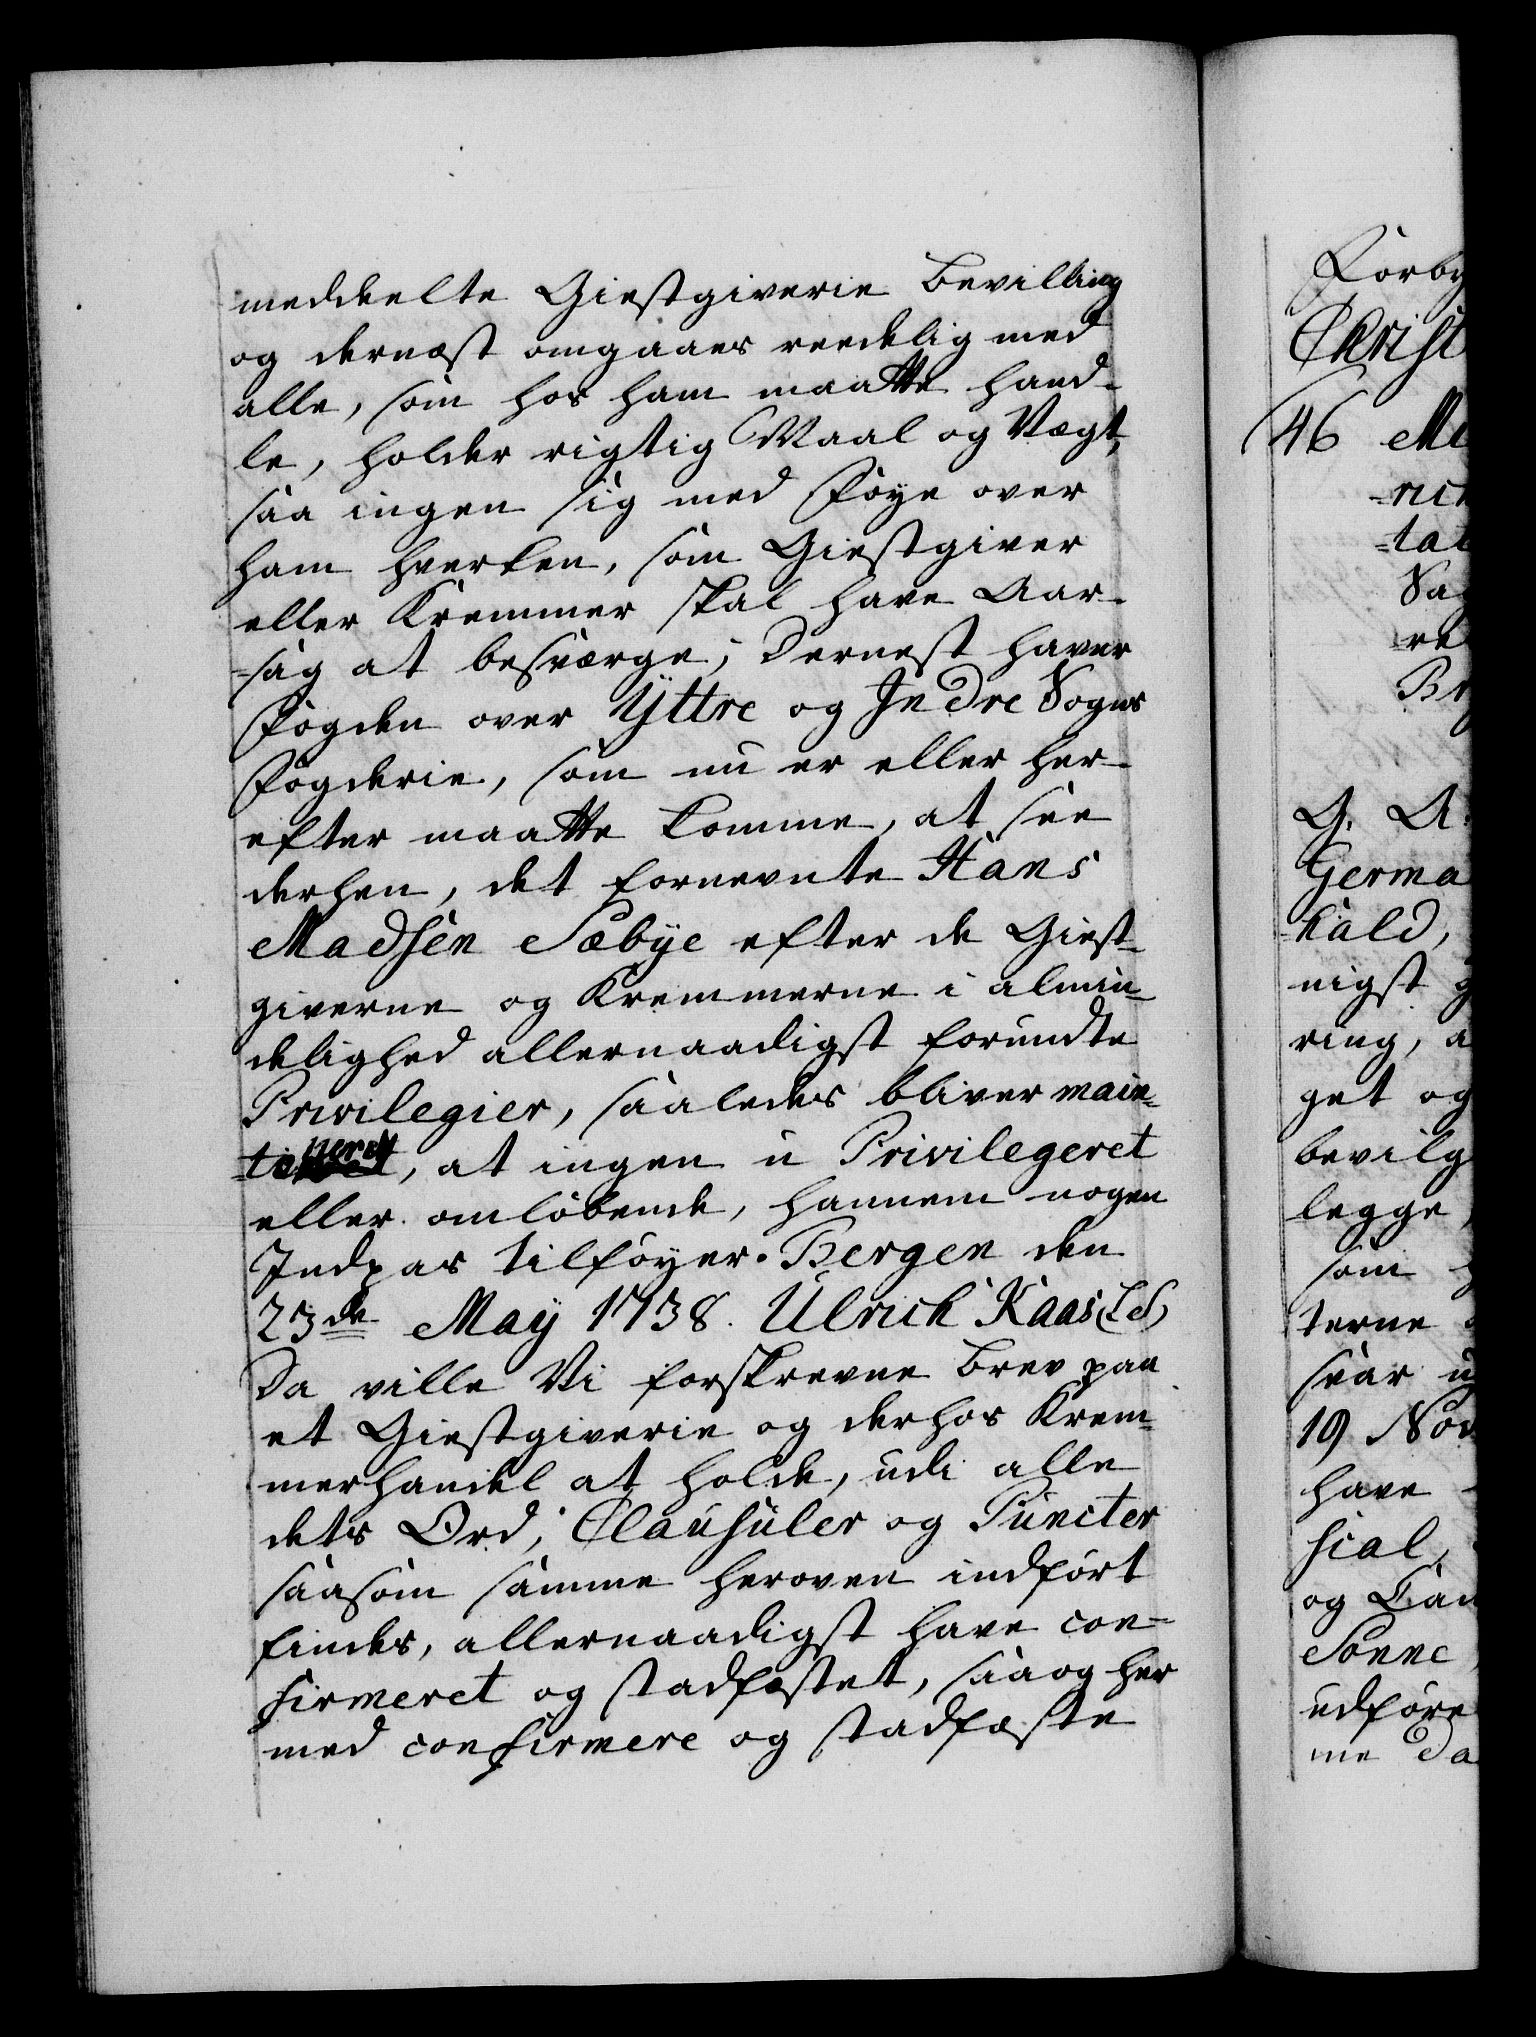 meddeelte Giestgiverie bevilling
og dernæst omgaaes reedelig med
alle, som hos ham maatte hand-
le, holder rigtig Maal og Vægt,
saa ingen sig med Føye over
ham hverken, som Giestgiver
eller Kremmer skal have Aar-
-sag at besværge; Dernest haver
Fogden over Yttre og Indre Sogns
Fogderie, som nu er eller her-
efter maatte komme, at see
derhen, det fornevnte Hans
Madsen Sæbye efter de Giest-
giverne og Kremmerne i almin-
delighed allernaadigst forundte
Privilegier, saaledes bliver main-
-tineret, at ingen u Privilegeret
eller omløbende, hannem nogen
Indpas tilføyer. Bergen den
23de May 1738. Ulrich Kaas (LS)
Da ville Vi forskrevne brev paa
et Giestgiverie og derhos Krem-
merhandel at holde, udi alle
dets Ord, Clausuler og Puncter
saasom samme heroven indført
findes, allernaadigst have con-
firmeret og stadfæstet, saa og her
med confirmere og stadfæste
Forby
Christ
46 Me
-rich
-tat
Sag
re
Br
G. A.
Germa
-kald,
nigst g
ring, a
get og
bevilg
legge,
som
terne
svar u
19 Nov
have
sial,
og Can
Sønne
udføre
me Da